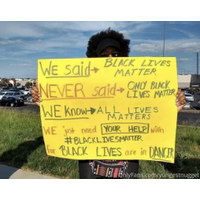 WE said → BLACK LIVES
MATTER
NEVER said → ONLY BLACK
LIVES MATTER
WE know → ALL LIVES
MATTERS
WE just need YOUR HELP with
#BLACKLIVESMATTER
for BLACK LIVES are in DANGER